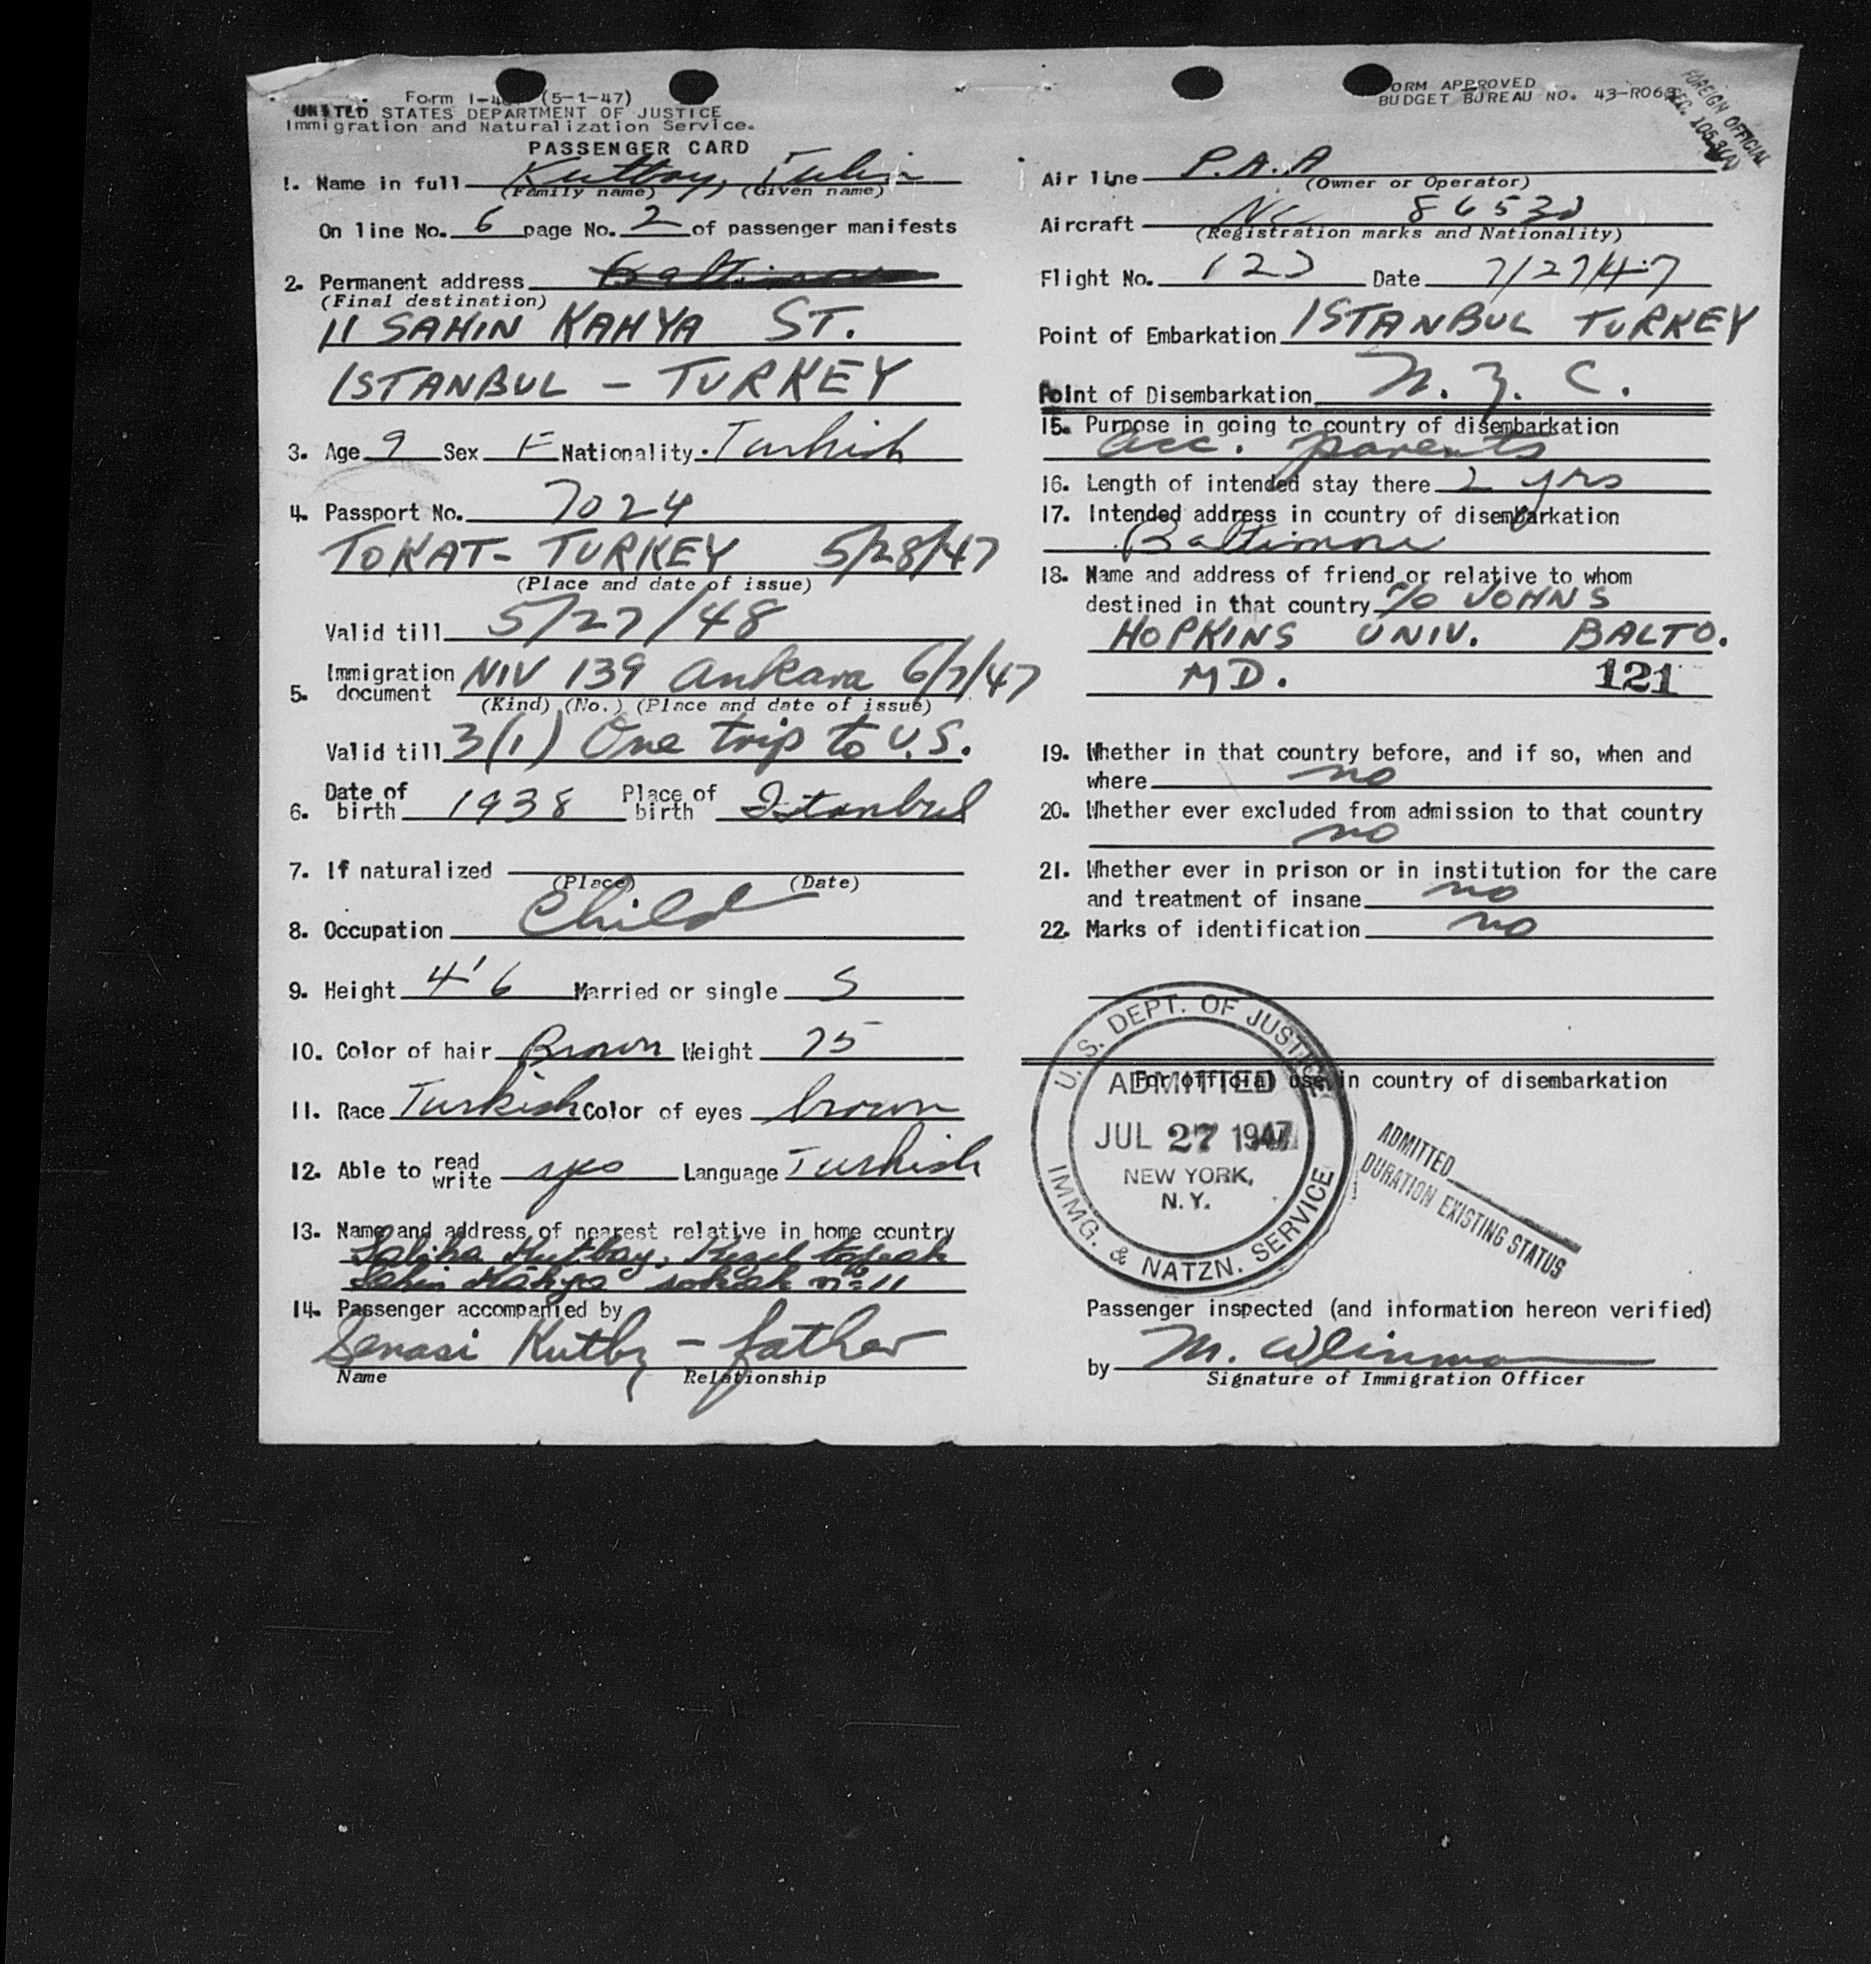 Form I-4 (5-1-47)
UNITED STATES DEPARTMENT OF JUSTICE
Immigration and Naturalization Service.
PASSENGER CARD
FORM APPROVED
BUDGET BUREAU NO. 43-R06
FOREIGN OFFICIAL
SEC. 105.3(A)
1. Name in full Kutbay, Tulin
(Family name) (Given name)
On line No. 6 page No. 2 of passenger manifests
2. Permanent address Baltimore
(Final destination)
11 SAHIN KAHYA ST.
ISTANBUL - TURKEY
3. Age 9 Sex F Nationality Turkish
4. Passport No. 7024
TOKAT - TURKEY 5/28/47
(Place and date of issue)
Valid till 5/27/48
5. Immigration document NIV 139 Ankara 6/7/47
(Kind) (No.) (Place and date of issue)
Valid till 3(1) One trip to U.S.
6. Date of birth 1938 Place of birth Istanbul
7. If naturalized
(Place) (Date)
8. Occupation Child
9. Height 4' 6 Married or single S
10. Color of hair Brown Weight 75
11. Race Turkish Color of eyes brown
12. Able to read write yes Language Turkish
13. Name and address of nearest relative in home country
Saliha Kutbay,
Sahin Kahya sokak no 11
14. Passenger accompanied by
Senasi Kutby - father
Name Relationship
Air line P.A.A
(Owner or Operator)
Aircraft NC 86530
(Registration marks and Nationality)
Flight No. 123 Date 7/27/47
Point of Embarkation ISTANBUL TURKEY
Point of Disembarkation N.Y.C.
15. Purpose in going to country of disembarkation
acc. parents
16. Length of intended stay there 2 yrs
17. Intended address in country of disembarkation
Baltimore
18. Name and address of friend or relative to whom
destined in that country c/o JOHNS
HOPKINS UNIV. BALTO.
MD. 121
19. Whether in that country before, and if so, when and
where no
20. Whether ever excluded from admission to that country
no
21. Whether ever in prison or in institution for the care
and treatment of insane no
22. Marks of identification no
For official use in country of disembarkation
U. S. DEPT. OF JUSTICE
ADMITTED
JUL 27 1947
NEW YORK,
N. Y.
IMMG. & NATZN. SERVICE
ADMITTED
DURATION EXISTING STATUS
Passenger inspected (and information hereon verified)
by M.
Signature of Immigration Officer